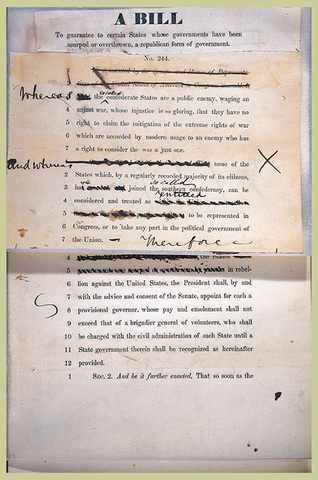 A BILL
To guarantee to certain States whose governments have been
usurped or overthrown, a republican form of government.
No. 244.
1
Whereas the so called confederate States are a public enemy, waging an
unjust war, whose injustice is so glaring, that they have no
5 right to claim the mitigation of the extreme rights of war
6 which are accorded by modern usage to an enemy who has
7 a right to consider the war a just one.
And whereas none of the
2 States which, by a regularly recorded majority of its citizens,
3 has joined the so called southern confederacy, can be
4 considered and treated as entitled
5 to be represented in
6 Congress, or to take any part in the political government of
7 the Union. — Therefore
4
5 in rebel-
6 lion against the United States, the President shall, by and
7 with the advice and consent of the Senate, appoint for each a
8 provisional governor, whose pay and emolument shall not
9 exceed that of a brigadier general of volunteers, who shall
10 be charged with the civil administration of such State until a
11 State government therein shall be recognized as hereinafter
12 provided.
1 SEC. 2. And be it further enacted, That so soon as the